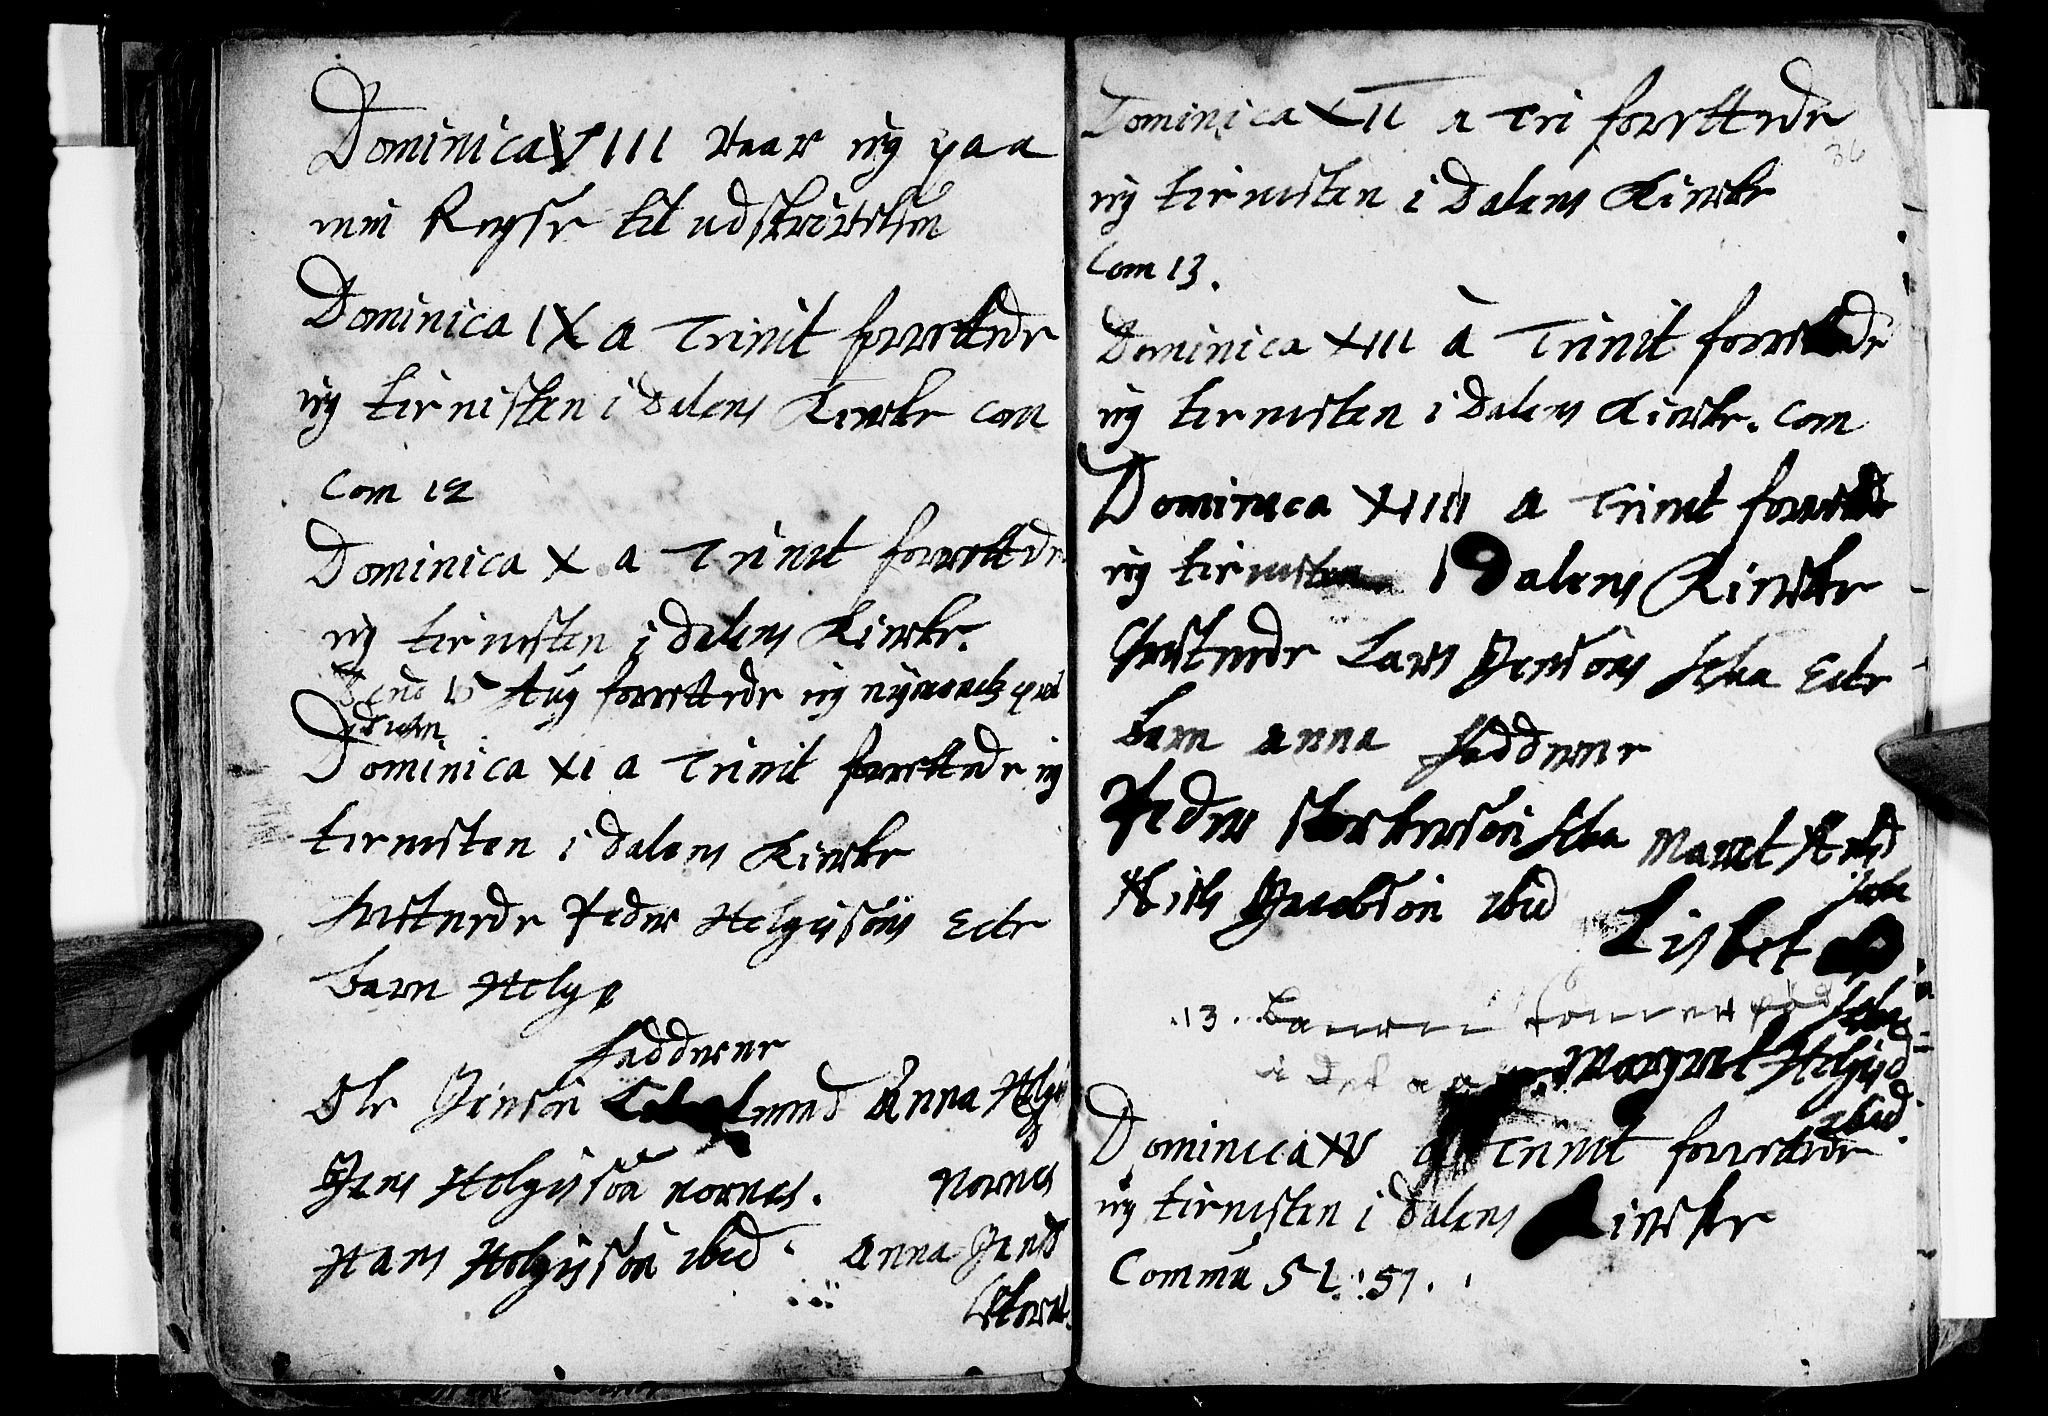 Dominica VIII vaar ieg paa
min Reyse til udskrivelsen
Dominica IX a Trinit forrettede
ieg tienisten i dalens Kircke com
Com 12
Dominica X a Trinit forrettede
ieg tienisten i dalens Kircke.
15 Aug forrettede ieg
Dominica XI a Trinit forrettede ieg
tienisten i dalens Kircke
Christnede Peder Helgisöns Ecte
barn Helge
fadderne
Ole Jensön Anna Helgis
Jens Helgissön nornes. Nornes
Hans Helgissön ibid. Anna Jensd
Dominica XII a Tri forrettede
36
ieg tienisten i Dalens Kircke
Com 13.
Dominica XIII à Trinit forrettede
ieg tienisten i dalens Kircke. Com
Dominica XIIII a Trinit forrettede
ieg tienisten i Dalens Kircke
Christnede Lars Jensöns Ecte
barn Anna fadderne
Peder Marit
Niels Jacobsön ibid
Lisbet
13. Barn
i det
Margret Helgisd
ibid.
Dominica XV a Trinit forrettede
ieg tienisten i dalens Kircke
Commu 51. 51.